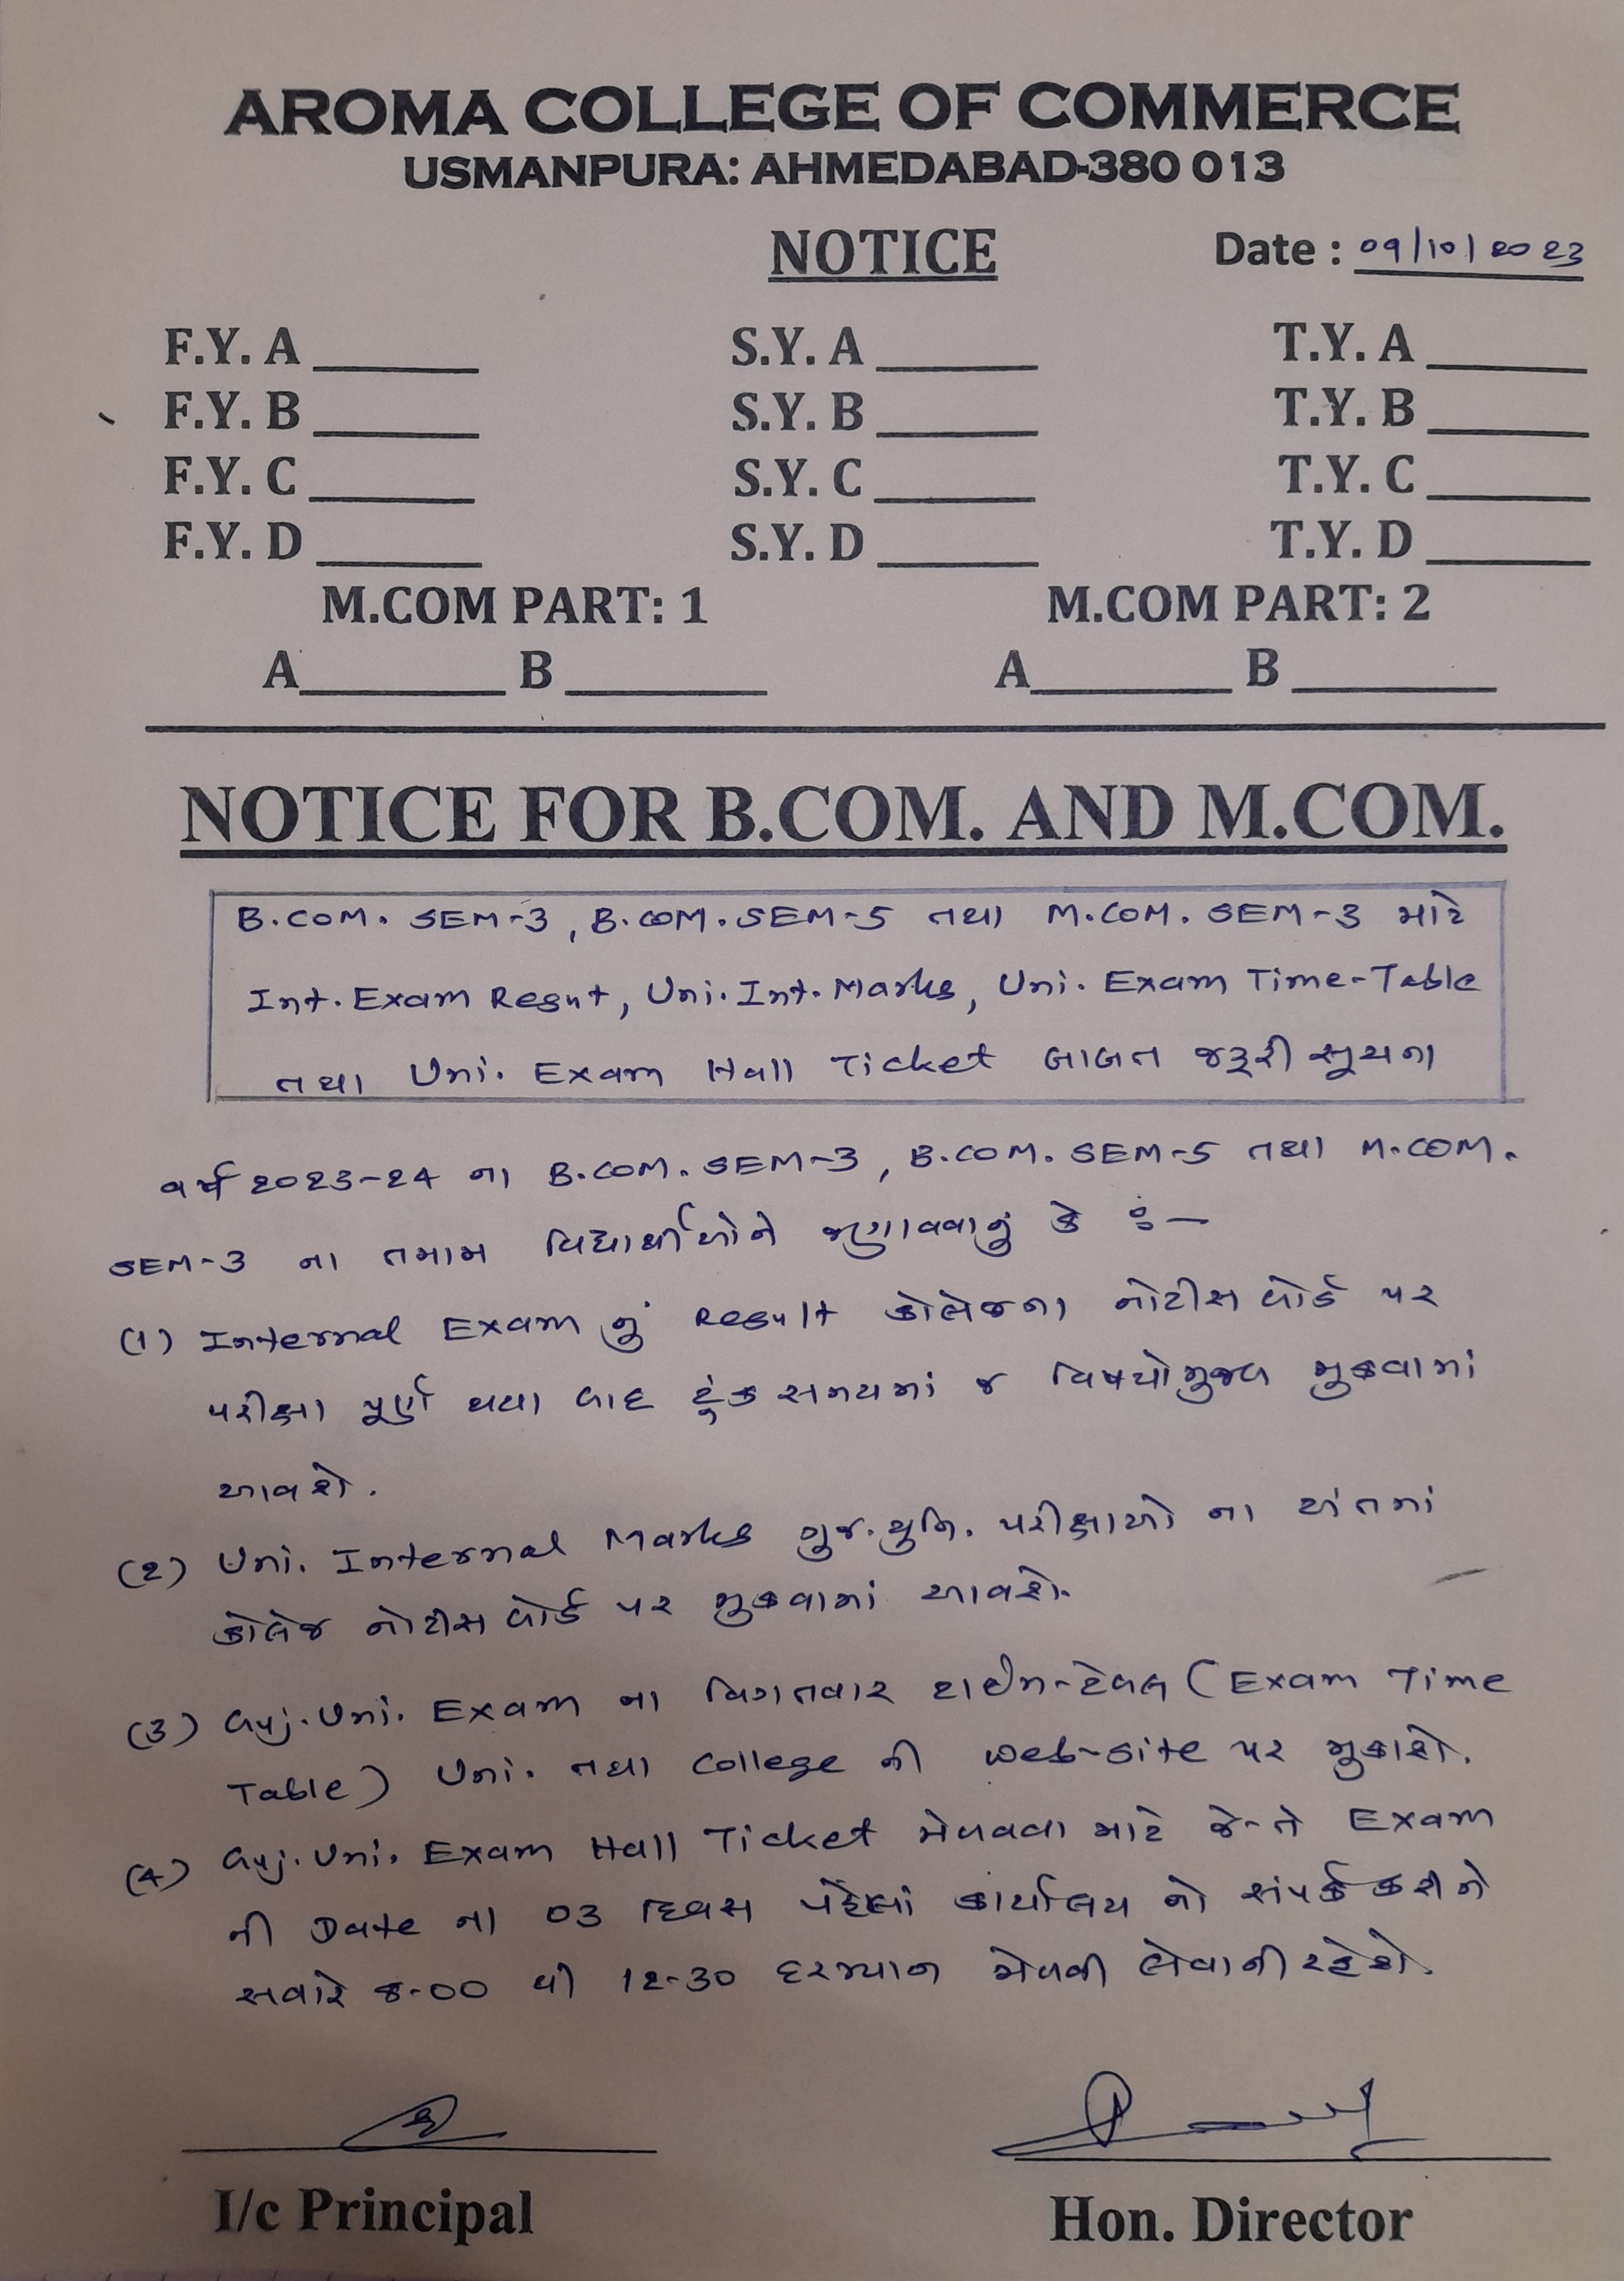 AROMA COLLEGE OF COMMERCE
USMANPURA: AHMEDABAD-380 013
NOTICE Date : 09/10/2023
F.Y. A ______ S.Y. A ______ T.Y. A ______
F.Y. B ______ S.Y. B ______ T.Y. B ______
F.Y. C ______ S.Y. C ______ T.Y. C ______
F.Y. D ______ S.Y. D ______ T.Y. D ______
M.COM PART: 1 M.COM PART: 2
A_______ B _______ A_______ B _______
NOTICE FOR B.COM. AND M.COM.
B.COM. SEM-3, B.COM. SEM-5 તથા M.COM. SEM-3 માટે
Int. Exam Resut, Uni. Int. Marks, Uni. Exam Time-Table
તથા Uni. Exam Hall Ticket બાબત જરૂરી સૂચના
વર્ષ 2023-24 ના B.COM. SEM-3, B.COM. SEM-5 તથા M.COM.
SEM-3 ના તમામ વિદ્યાર્થીઓને જણાવવાનું કે ઃ-
(1) Internal Exam નું Result કોલેજના નોટીસ બોર્ડ પર
પરીક્ષા પૂર્ણ થયા બાદ ટૂંક સમયમાં જ વિષયોમુજબ મુકવામાં
આવશે.
(2) Uni. Internal Marks ગુજ.યુનિ. પરીક્ષાઓ ના અંતમાં
કોલેજ નોટીસ બોર્ડ પર મુકવામાં આવશે.
(3) Guj. Uni. Exam ના વિગતવાર ટાઈમ-ટેબલ (Exam Time
Table) Uni. તથા College ની web-site પર મુકાશે.
(4) Guj. Uni. Exam Hall Ticket મેળવવા માટે જે-તે Exam
ની Date ના 03 દિવસ પહેલાં કાર્યાલય નો સંપર્ક કરીને
સવારે 8-00 થી 12-30 દરમ્યાન મેળવી લેવાની રહેશે.
I/c Principal Hon. Director